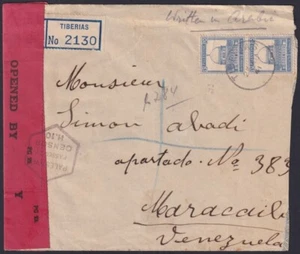 TIBERIAS
No 2130
written in Arabic
OPENED BY
Monsieur
Simon Abadi
apartado. No 383
Maracaib
Venezuela